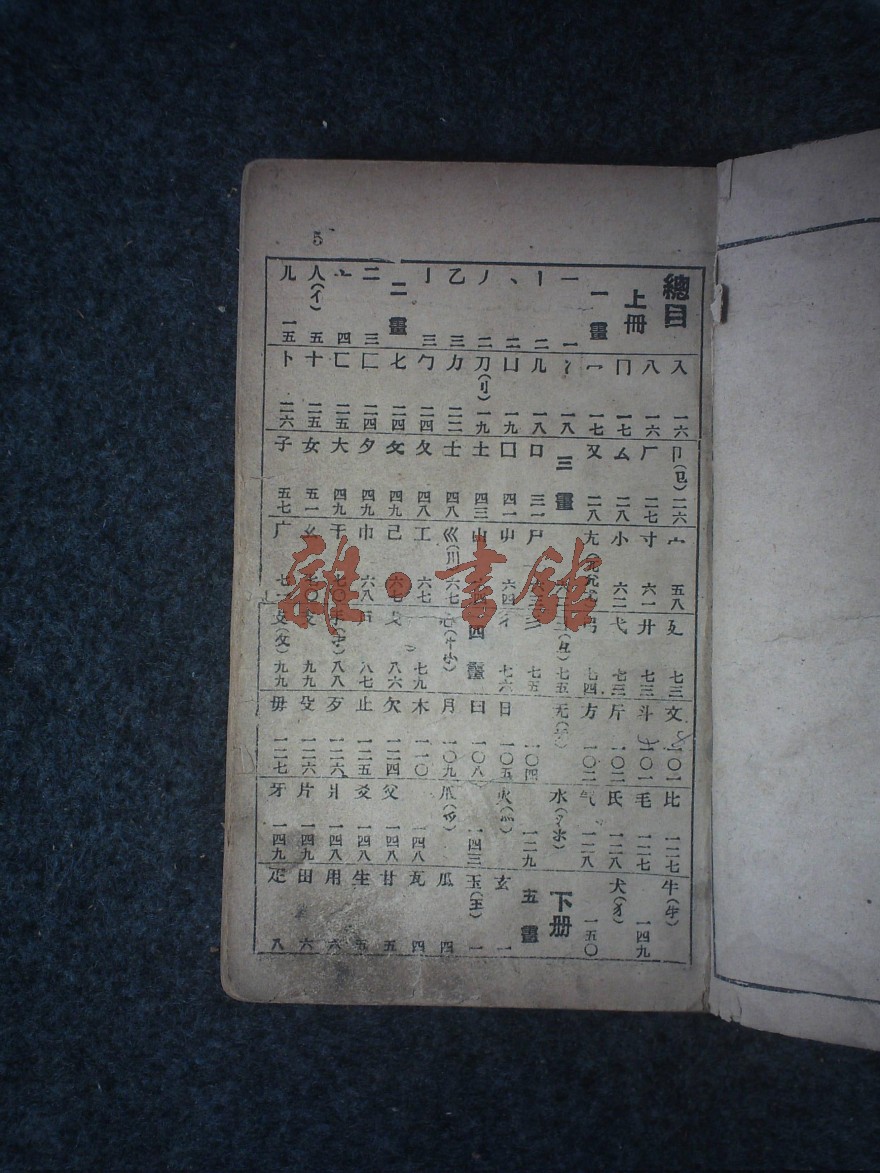 5
總目
上冊
一畫
一 一
丨 二
丶 二
丿 二
乙 三
亅 三
二畫
二 三
亠 四
人(亻) 五
儿 一五
入 一六
八 一六
冂 一七
冖 一七
冫 一八
几 一八
凵 一九
刀(刂) 一九
力 二二
勹 二四
匕 二四
匚 二四
匸 二五
十 二五
卜 二六
卩(㔾) 二六
厂 二七
厶 二八
又 二八
三畫
口 三一
囗 四一
土 四三
士 四八
夂 四八
夊 四九
夕 四九
大 四九
女 五一
子 五七
宀 五八
寸 六一
小 六二
尢
尸 六三
屮 六四
山 六四
巛(川) 六七
工 六七
己 六七
巾 六八
干 七〇
幺 七〇
广 七一
廴 七三
廾 七三
弋 七三
弓 七四
彐(彑) 七五
彡 七五
彳 七六
四畫
心(忄㣺) 七九
戈 八六
戶 八七
手(扌) 八八
支 九九
攴(攵) 九九
文 一〇一
斗 一〇一
斤 一〇二
方 一〇二
无(旡) 一〇四
日 一〇五
曰 一〇八
月 一〇九
木 一一〇
欠 一二四
止 一二五
歹 一二六
殳 一二六
毋 一二七
比 一二七
毛 一二七
氏 一二八
气 一二八
水(氵氺) 一二九
火(灬) 一四三
爪(爫) 一四八
父 一四八
爻 一四八
爿 一四八
片 一四九
牙 一四九
牛(牜) 一四九
犬(犭) 一五〇
下册
五畫
玄 一
玉(王) 一
瓜 四
瓦 四
甘 五
生 五
用 六
田 六
疋 八
雜·書館